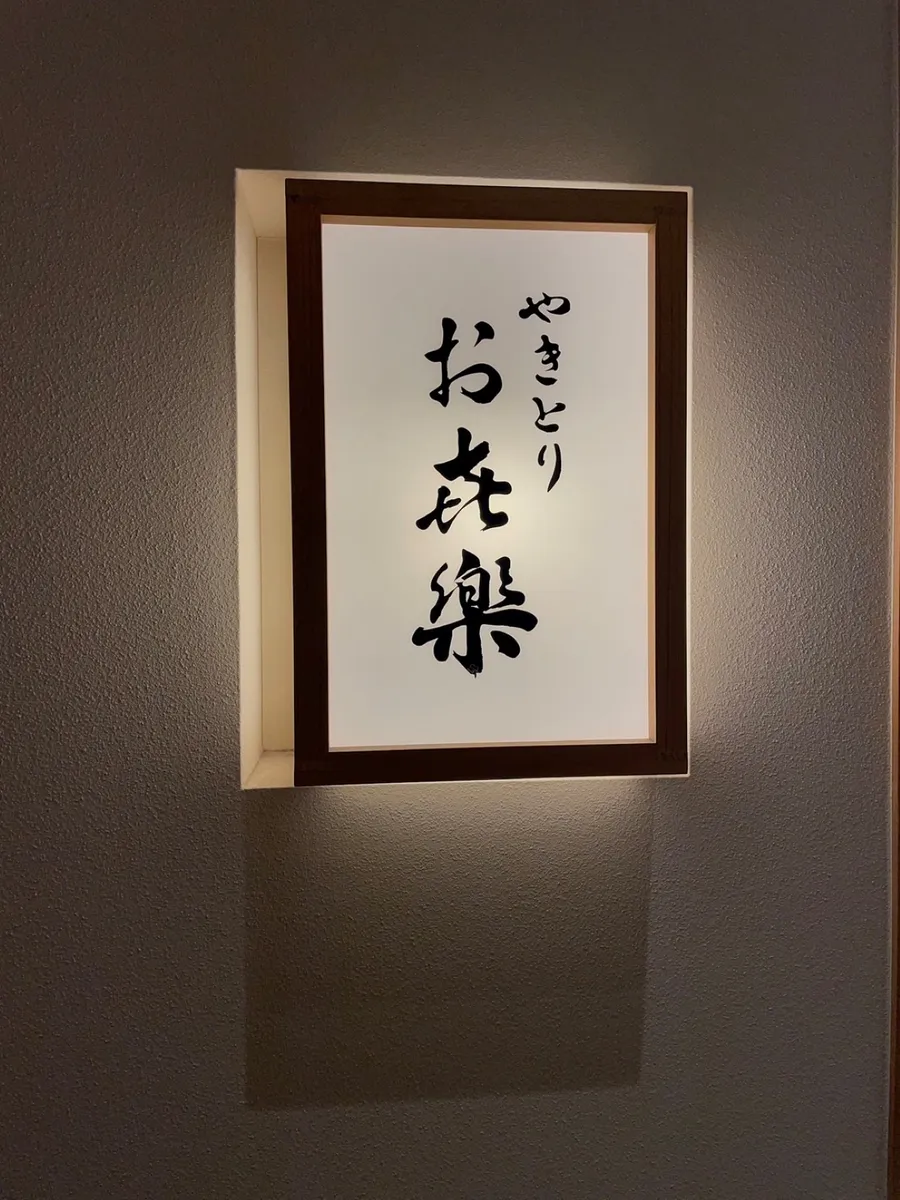 やきとり
お㐂樂